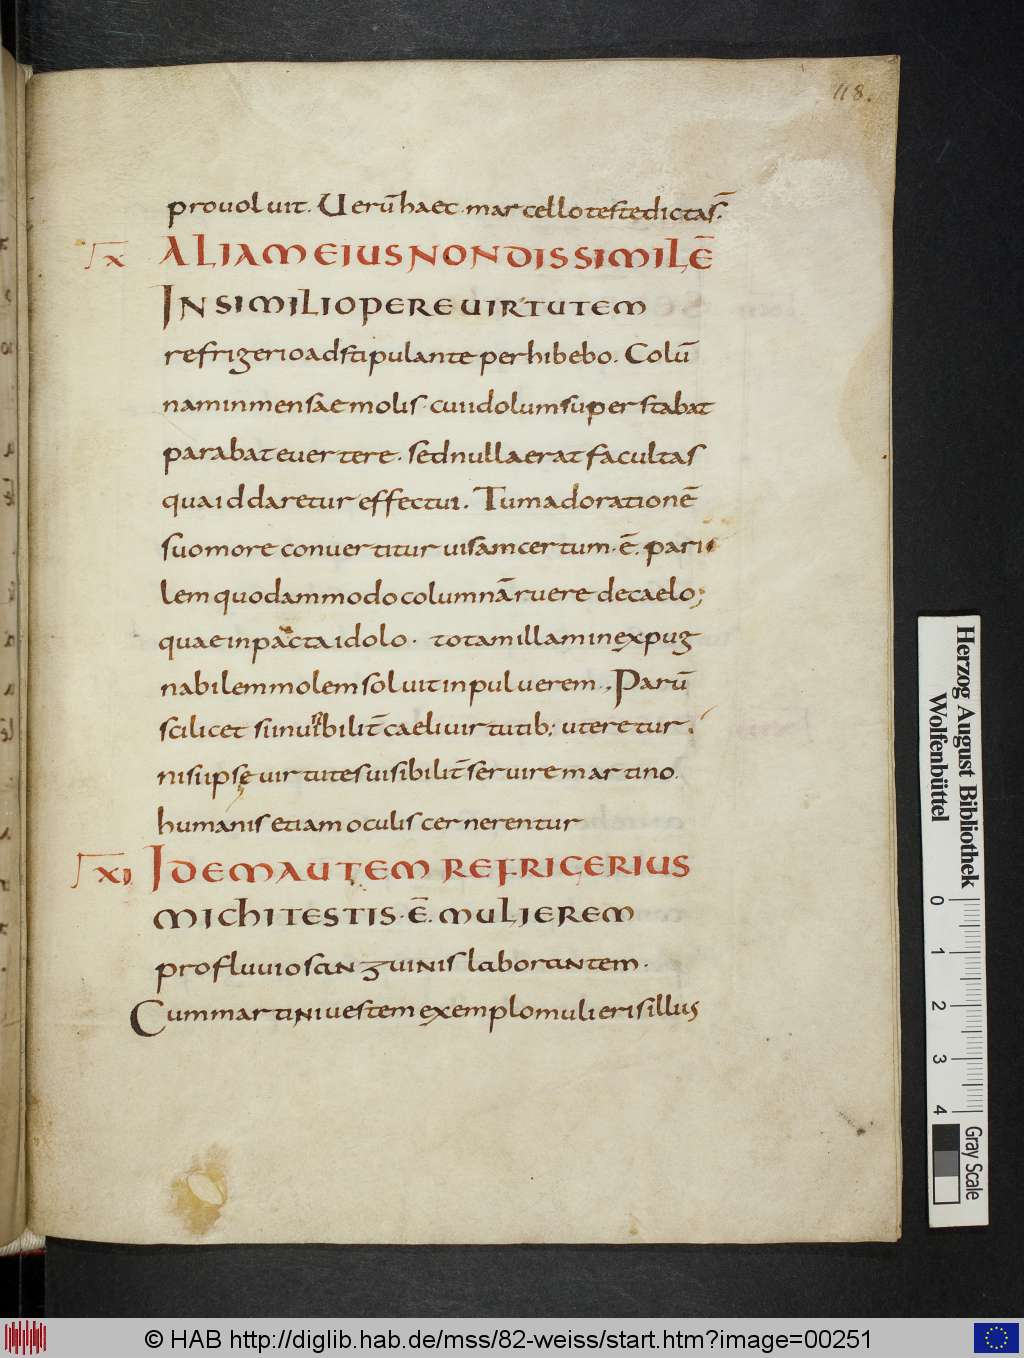 118.
prouoluit. Uerū haec. marcello teste dictas̄.
x ALIAM EIUS NON DISSIMILĒ
IN SIMILI OPERE UIRTUTEM
refrigerio adstipulante perhibebo. Colū
nam inmensae molis. cui idolum super stabat
parabat euertere. sed nulla erat facultas
qua id daretur effectui. Tum ad orationē
suo more conuertitur uisam certum. ē. pari
lem quodammodo columnā ruere de caelo;
quae inpacta idolo. totam illam inexpug
nabilem molem soluit in puluerem., Parū
scilicet si inuisibilit̄ caeli uirtutib; uteretur.
nisi ipsę uirtutes uisibilit̄ seruire martino.
humanis etiam oculis cernerentur
xi IDEM AUTEM REFRIGERIUS
MICHI TESTIS. Ē. MULIEREM
profluuio sanguinis laborantem.
Cum martini uestem exemplo mulieris illius
Herzog August Bibliothek
Wolfenbüttel
0 1 2 3 4
Gray Scale
© HAB http://diglib.hab.de/mss/82-weiss/start.htm?image=00251